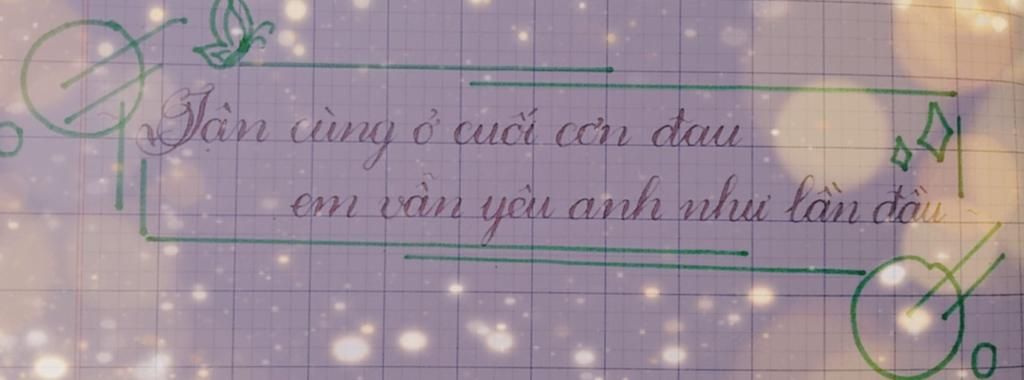 Tận cùng ở cuối cơn đau
em vẫn yêu anh như lần đầu